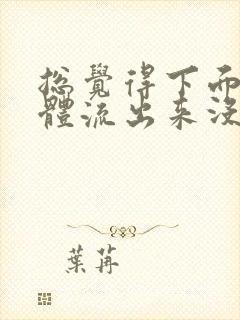 總覺得下面
體流出来沒
葉苒